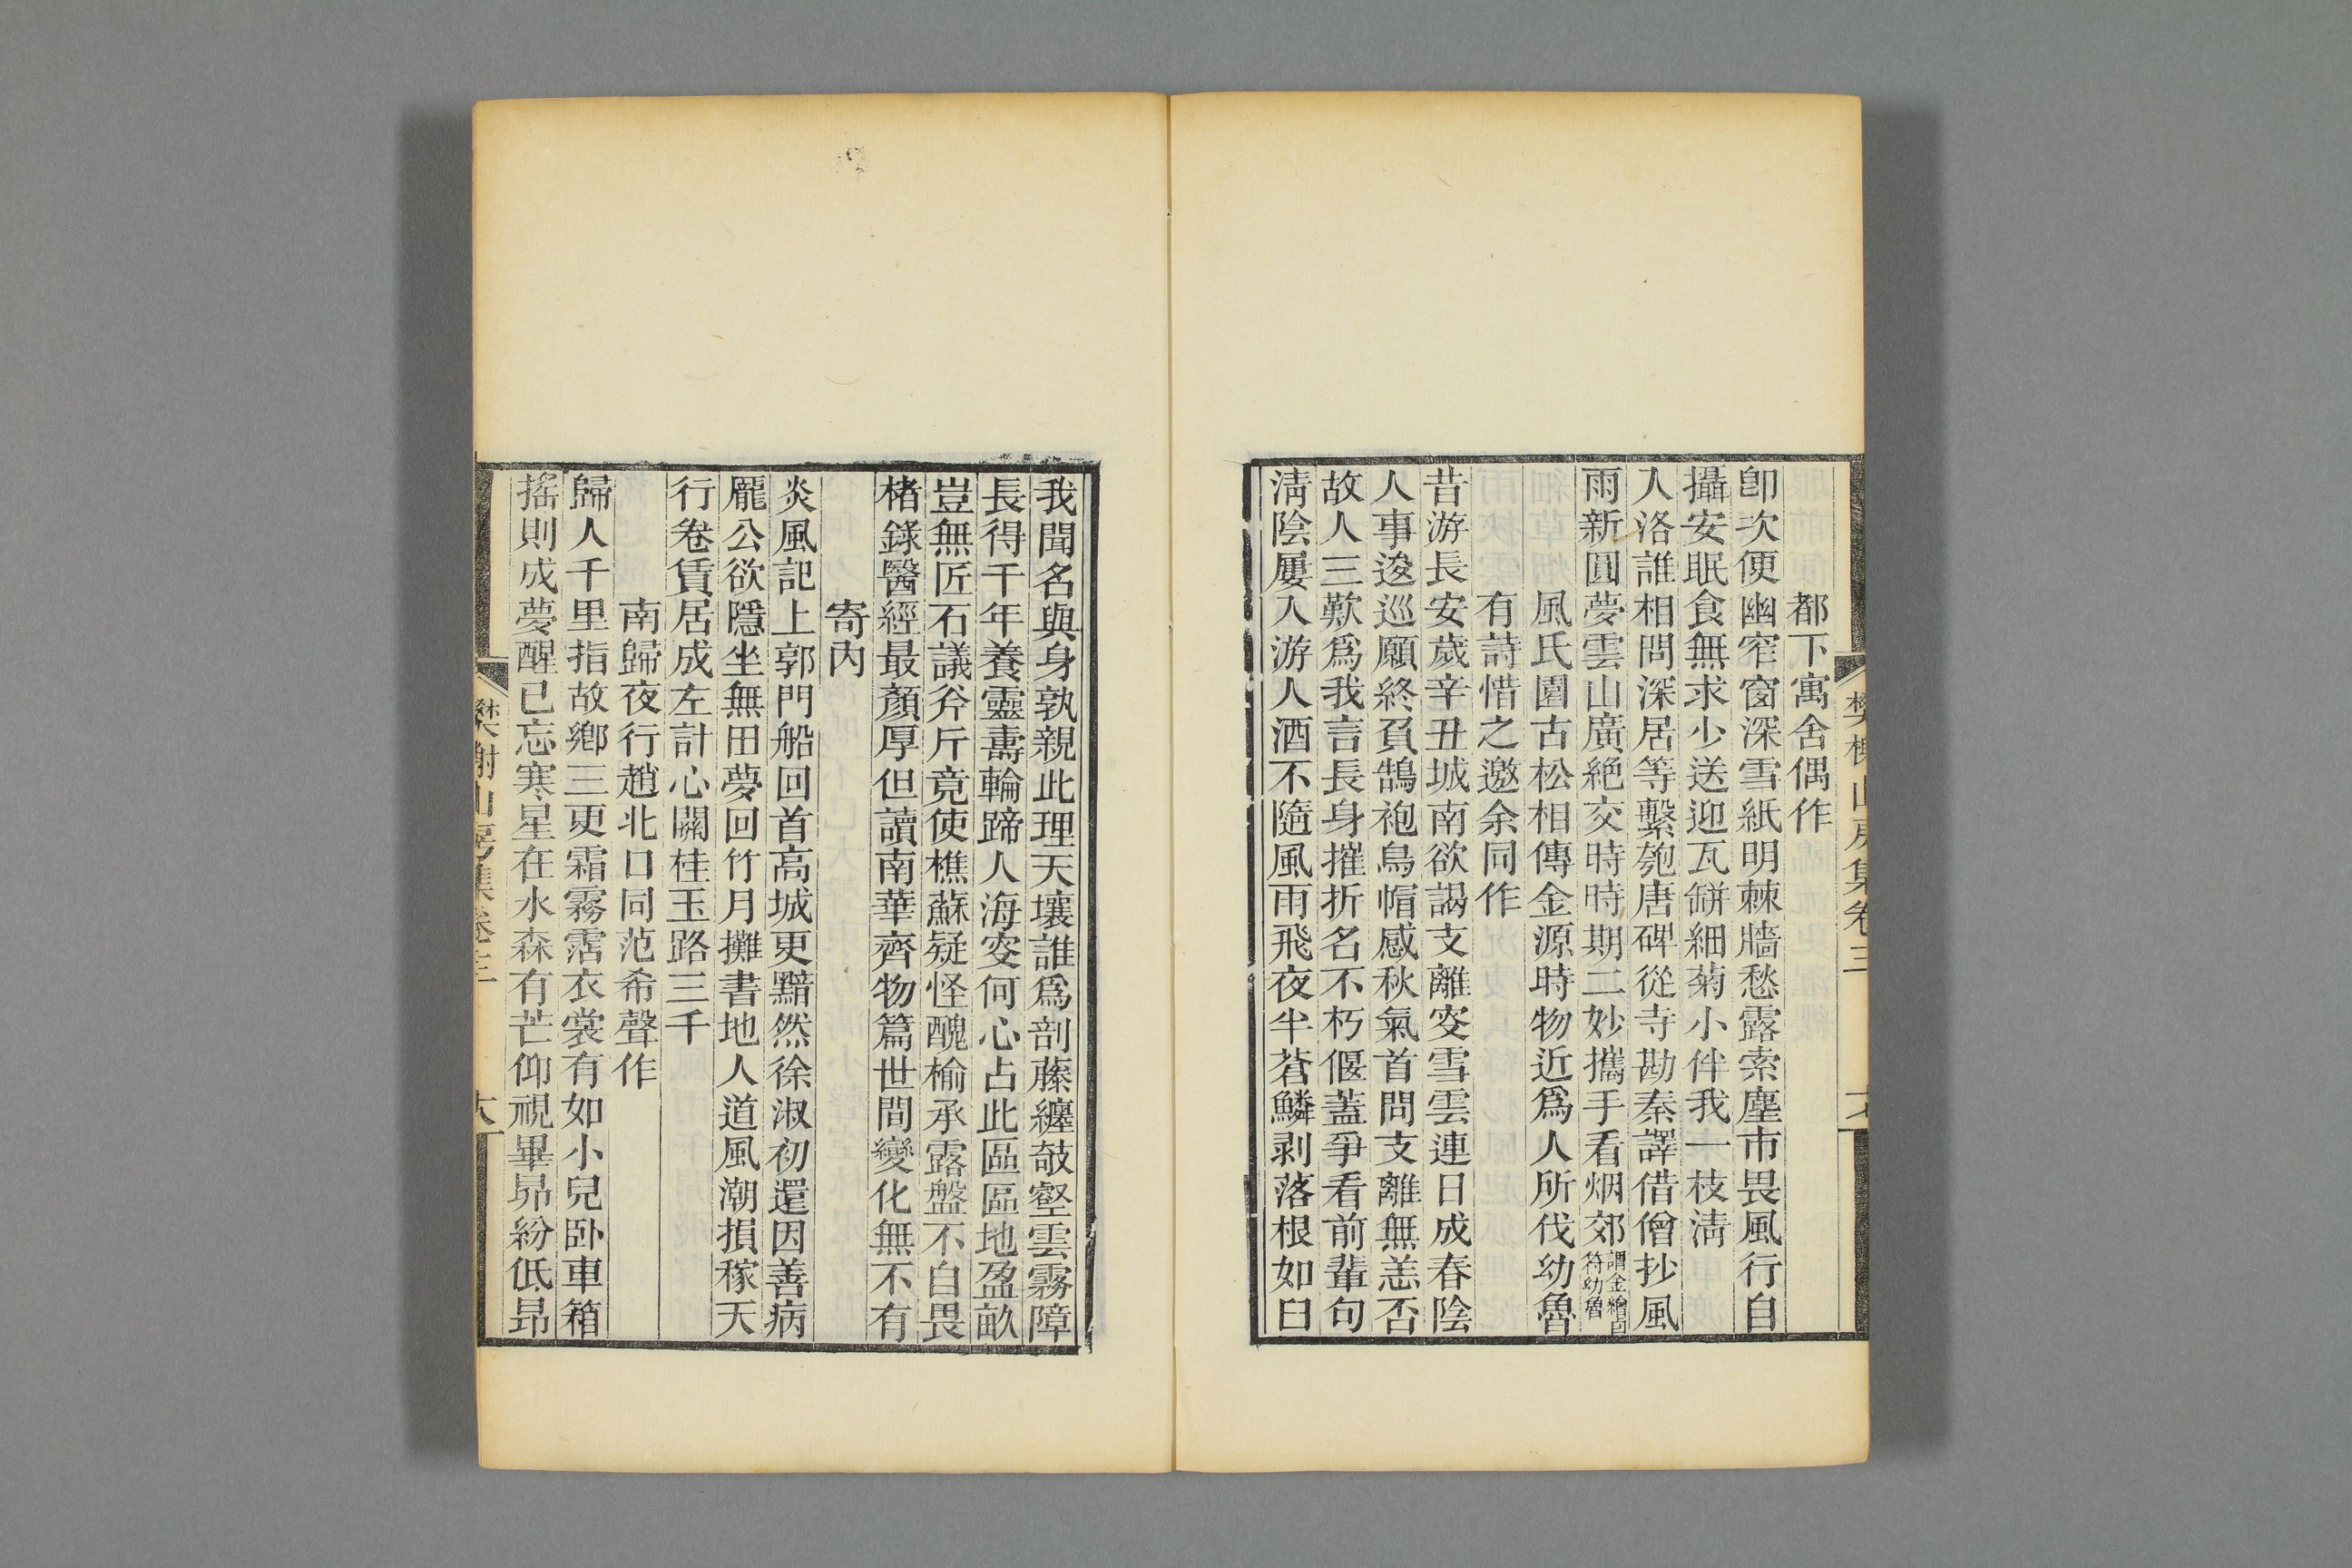 都下寓舍偶作
卽次便幽窄窗深雪紙明棘牆愁露索塵市畏風行自
攝安眠食無求少送迎瓦缾細菊小伴我一枝淸
入洛誰相問深居等繫匏唐碑從寺勘秦譯借僧抄風
雨新圓夢雲山廣絶交時時期二妙攜手看烟郊謂金繪卣
符幼魯
風氏園古松相傳金源時物近爲人所伐幼魯
有詩惜之邀余同作
昔游長安歲辛丑城南欲謁支離叜雪雲連日成春陰
人事逡巡願終負鵠袍烏帽感秋氣首問支離無恙否
故人三歎爲我言長身摧折名不朽偃蓋爭看前輩句
淸陰屢入游人酒不隨風雨飛夜半蒼鱗剥落根如臼
樊榭山房集卷三
我聞名與身孰親此理天壤誰爲剖藤纏攲壑雲霧障
長得千年養靈壽輪蹄人海叜何心占此區區地盈畝
豈無匠石議斧斤竟使樵蘇疑怪醜榆承露盤不自畏
楮錄醫經最顏厚但讀南華齊物篇世間變化無不有
寄內
炎風記上郭門船回首高城更黯然徐淑初還因善病
龐公欲隱坐無田夢回竹月攤書地人道風潮損稼天
行卷賃居成左計心關桂玉路三千
南歸夜行趙北口同范希聲作
歸人千里指故鄉三更霜霧霑衣裳有如小兒卧車箱
搖則成夢醒已忘寒星在水森有芒仰視畢昴紛低昂
樊榭山房集卷三